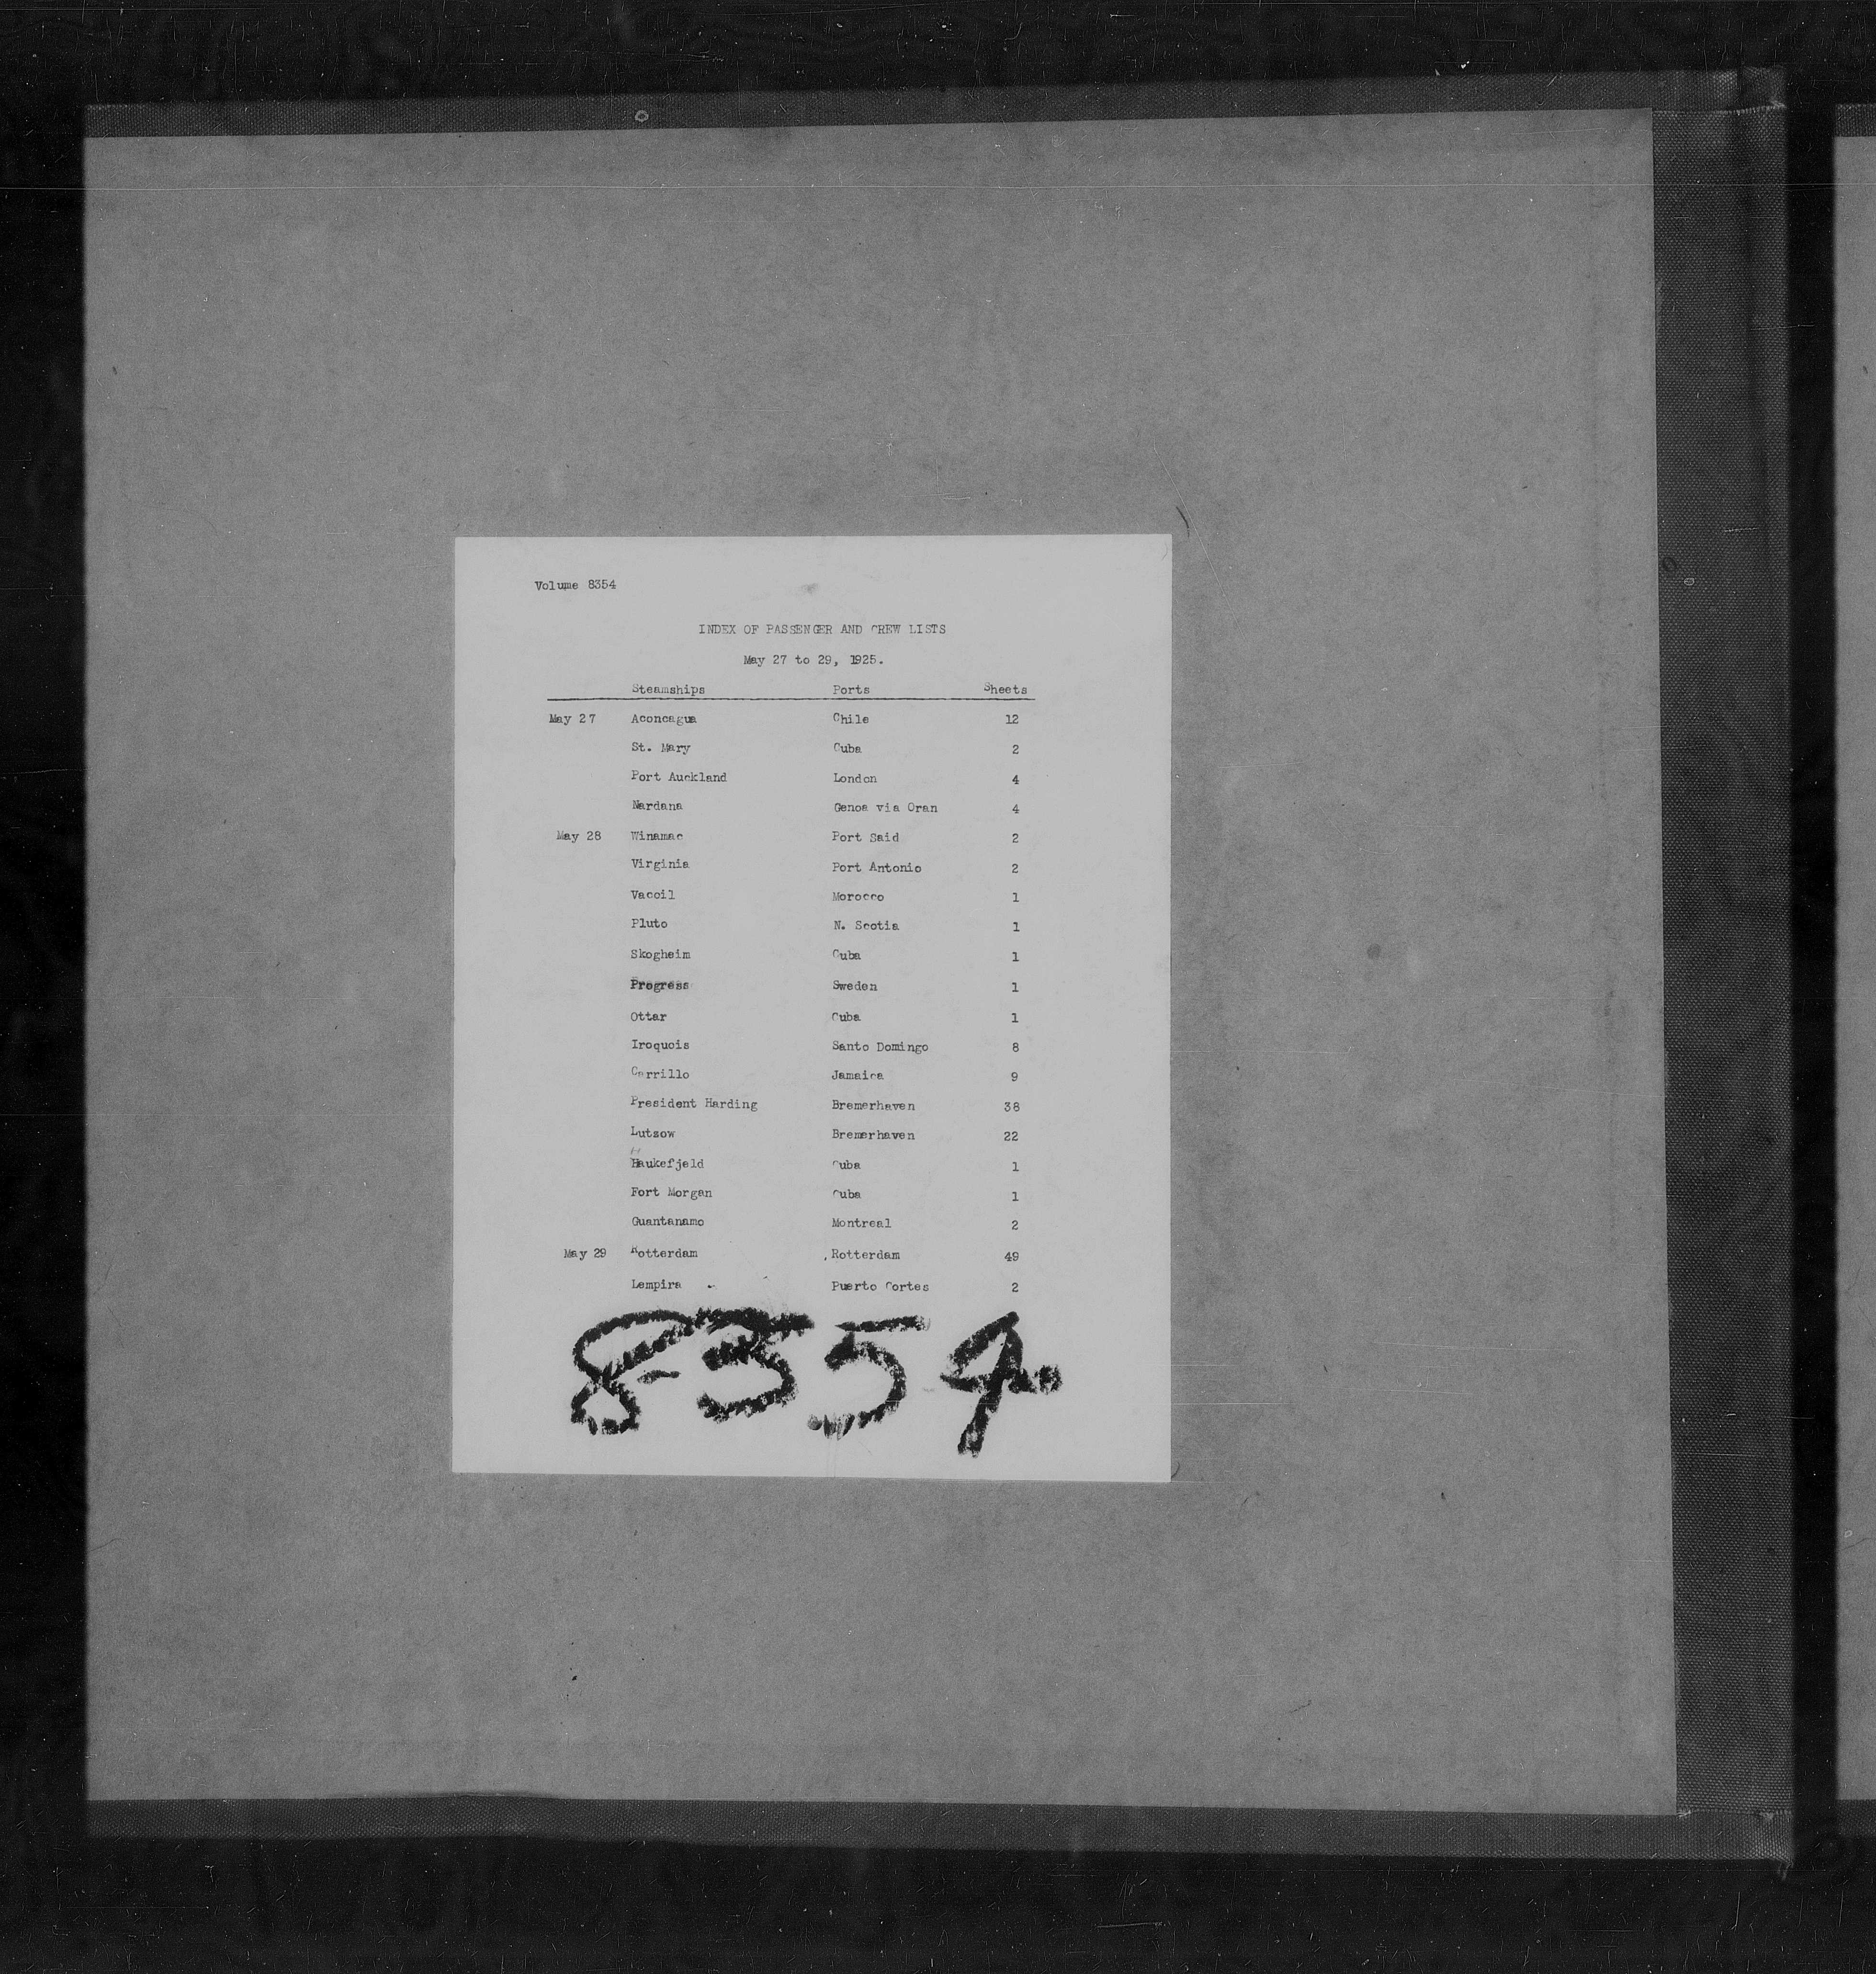 Volume 8354
INDEX OF PASSENGER AND CREW LISTS
May 27 to 29, 1925.
Steamships Ports Sheets
May 27 Aconcagua Chile 12
St. Mary Cuba 2
Port Auckland London 4
Nardana Genoa via Oran 4
May 28 Winamac Port Said 2
Virginia Port Antonio 2
Vacoil Morocco 1
Pluto N. Scotia 1
Skogheim Cuba 1
Progress Sweden 1
Ottar Cuba 1
Iroquois Santo Domingo 8
Carrillo Jamaica 9
President Harding Bremerhaven 38
Lutzow Bremerhaven 22
Haukefjeld Cuba 1
Fort Morgan Cuba 1
Guantanamo Montreal 2
May 29 Rotterdam Rotterdam 49
Lempira Puerto Cortes 2
8354